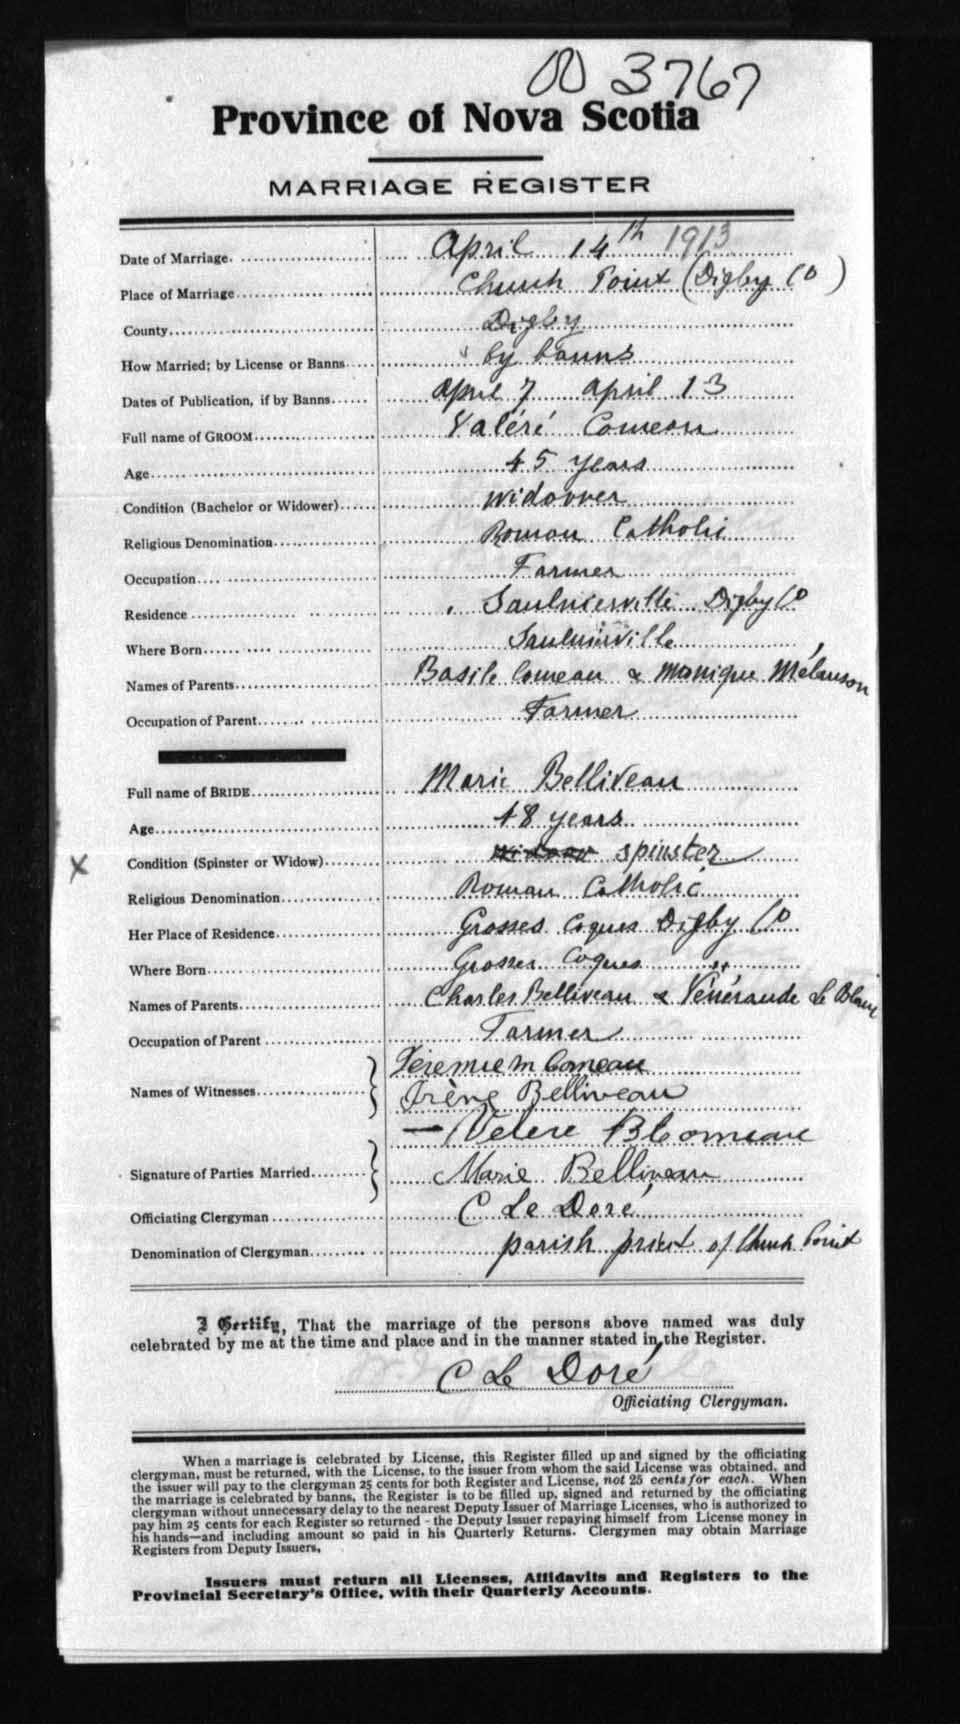 00 3767
Province of Nova Scotia
MARRIAGE REGISTER
Date of Marriage. April 14th 1913
Place of Marriage Church Point (Digby Co)
County Digby
How Married; by License or Banns by banns
Dates of Publication, if by Banns April 7 April 13
Full name of GROOM Valéré Comeau
Age 45 years
Condition (Bachelor or Widower) widower
Religious Denomination Roman Catholic
Occupation Farmer
Residence Saulnierville Digby Co
Where Born Saulnierville
Names of Parents Basile Comeau & Monique Mélanson
Occupation of Parent Farmer
Full name of BRIDE Marie Belliveau
Age 48 years
X Condition (Spinster or Widow) widow spinster
Religious Denomination Roman Catholic
Her Place of Residence Grosses Coques Digby Co
Where Born Grosses Coques
Names of Parents Charles Belliveau & Vénéraude Le Blanc
Occupation of Parent Farmer
Names of Witnesses Jéremie M Comeau
Irène Belliveau
Velere B Comeau
Signature of Parties Married Marie Belliveau
Officiating Clergyman C Le Doré
Denomination of Clergyman parish priest of Church Point
I Certify, That the marriage of the persons above named was duly
celebrated by me at the time and place and in the manner stated in the Register.
C Le Doré
Officiating Clergyman.
When a marriage is celebrated by License, this Register filled up and signed by the officiating
clergyman, must be returned, with the License, to the issuer from whom the said License was obtained, and
the issuer will pay to the clergyman 25 cents for both Register and License, not 25 cents for each. When
the marriage is celebrated by banns, the Register is to be filled up, signed and returned by the officiating
clergyman without unnecessary delay to the nearest Deputy Issuer of Marriage Licenses, who is authorized to
pay him 25 cents for each Register so returned - the Deputy Issuer repaying himself from License money in
his hands—and including amount so paid in his Quarterly Returns. Clergymen may obtain Marriage
Registers from Deputy Issuers.
Issuers must return all Licenses, Affidavits and Registers to the
Provincial Secretary's Office, with their Quarterly Accounts.